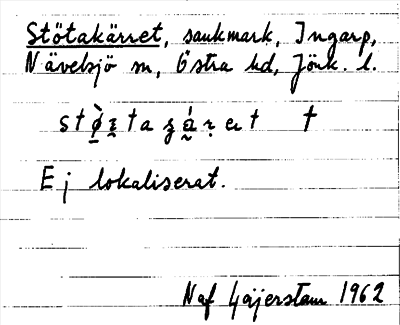 Stötakärret, sankmark, Ingarp,
Nävelsjö sn, Östra hd, Jönk. l.
Ej lokaliserat.
Naf Gäjerstam 1962